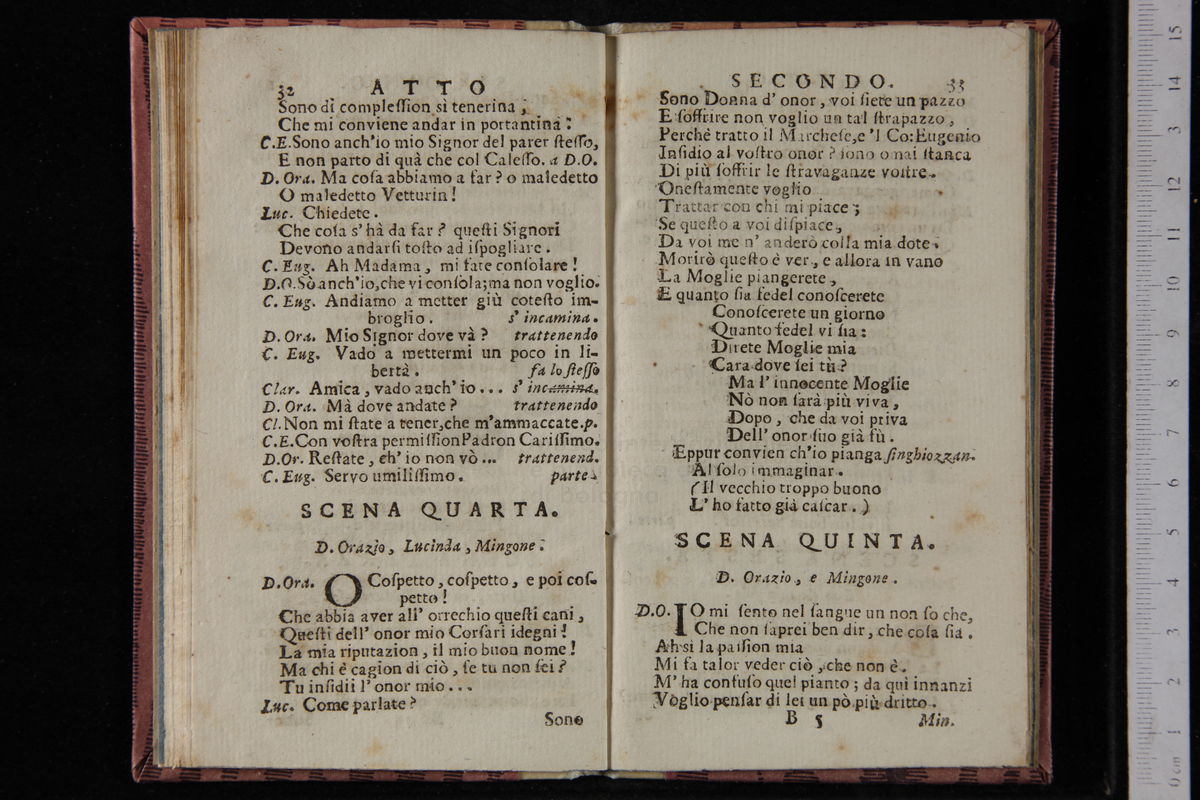 32 ATTO
Sono di complession sì tenerina ,
Che mi conviene andar in portantina :
C.E. Sono anch'io mio Signor del parer stesso,
E non parto di quà che col Calesso. a D.O.
D. Ora. Ma cosa abbiamo a far ? o maledetto
O maledetto Vetturin !
Luc. Chiedete .
Che cosa s' hà da far ? questi Signori
Devono andarsi tosto ad ispogliare .
C. Eug. Ah Madama , mi fate consolare !
D.O. Sò anch'io,che vi consola;ma non voglio.
C. Eug. Andiamo a metter giù cotesto im-
broglio . s' incamina .
D. Ora. Mio Signor dove và ? trattenendo
C. Eug. Vado a mettermi un poco in li-
bertà . fa lo stesso
Clar. Amica , vado anch' io . . . s' incamina.
D. Ora. Mà dove andate ? trattenendo
Cl. Non mi state a tener,che m'ammaccate.p.
C.E. Con vostra permission Padron Carissimo.
D.Or. Restate , ch' io non vò ... trattenend.
C. Eug. Servo umilissimo . parte.
SCENA QUARTA.
D. Orazio , Lucinda , Mingone .
D.Ora. O Cospetto , cospetto , e poi cos-
petto !
Che abbia aver all' orrechio questi cani ,
Questi dell' onor mio Corsari idegni !
La mia riputazion , il mio buon nome !
Ma chi è cagion di ciò , se tu non sei ?
Tu insidii l' onor mio . . .
Luc. Come parlate ?
Sono
SECONDO. 33
Sono Donna d' onor , voi siete un pazzo
E soffrire non voglio un tal strapazzo ,
Perchè tratto il Marchese,e 'l Co: Eugenio
Insidio al vostro onor ? sono omai stanca
Di più soffrir le stravaganze vostre .
Onestamente voglio
Trattar con chi mi piace ;
Se questo a voi dispiace ,
Da voi me n' anderò colla mia dote .
Morirò questo è ver , e allora in vano
La Moglie piangerete ,
E quanto sia fedel conoscerete
Conoscerete un giorno
Quanto fedel vi sia :
Direte Moglie mia
Cara dove sei tù ?
Ma l' innocente Moglie
Nò non sarà più viva ,
Dopo , che da voi priva
Dell' onor suo già fù .
Eppur convien ch'io pianga singhiozzan.
Al solo immaginar .
( Il vecchio troppo buono
L' ho fatto già cascar . )
SCENA QUINTA.
D. Orazio , e Mingone .
D.O. IO mi sento nel sangue un non so che,
Che non saprei ben dir , che cosa sia .
Ah si la passion mia
Mi fa talor veder ciò , che non è .
M' ha confuso quel pianto ; da qui innanzi
Voglio pensar di lei un pò più dritto .
B 5 Min.
0 cm 1 2 3 4 5 6 7 8 9 10 11 12 13 14 15